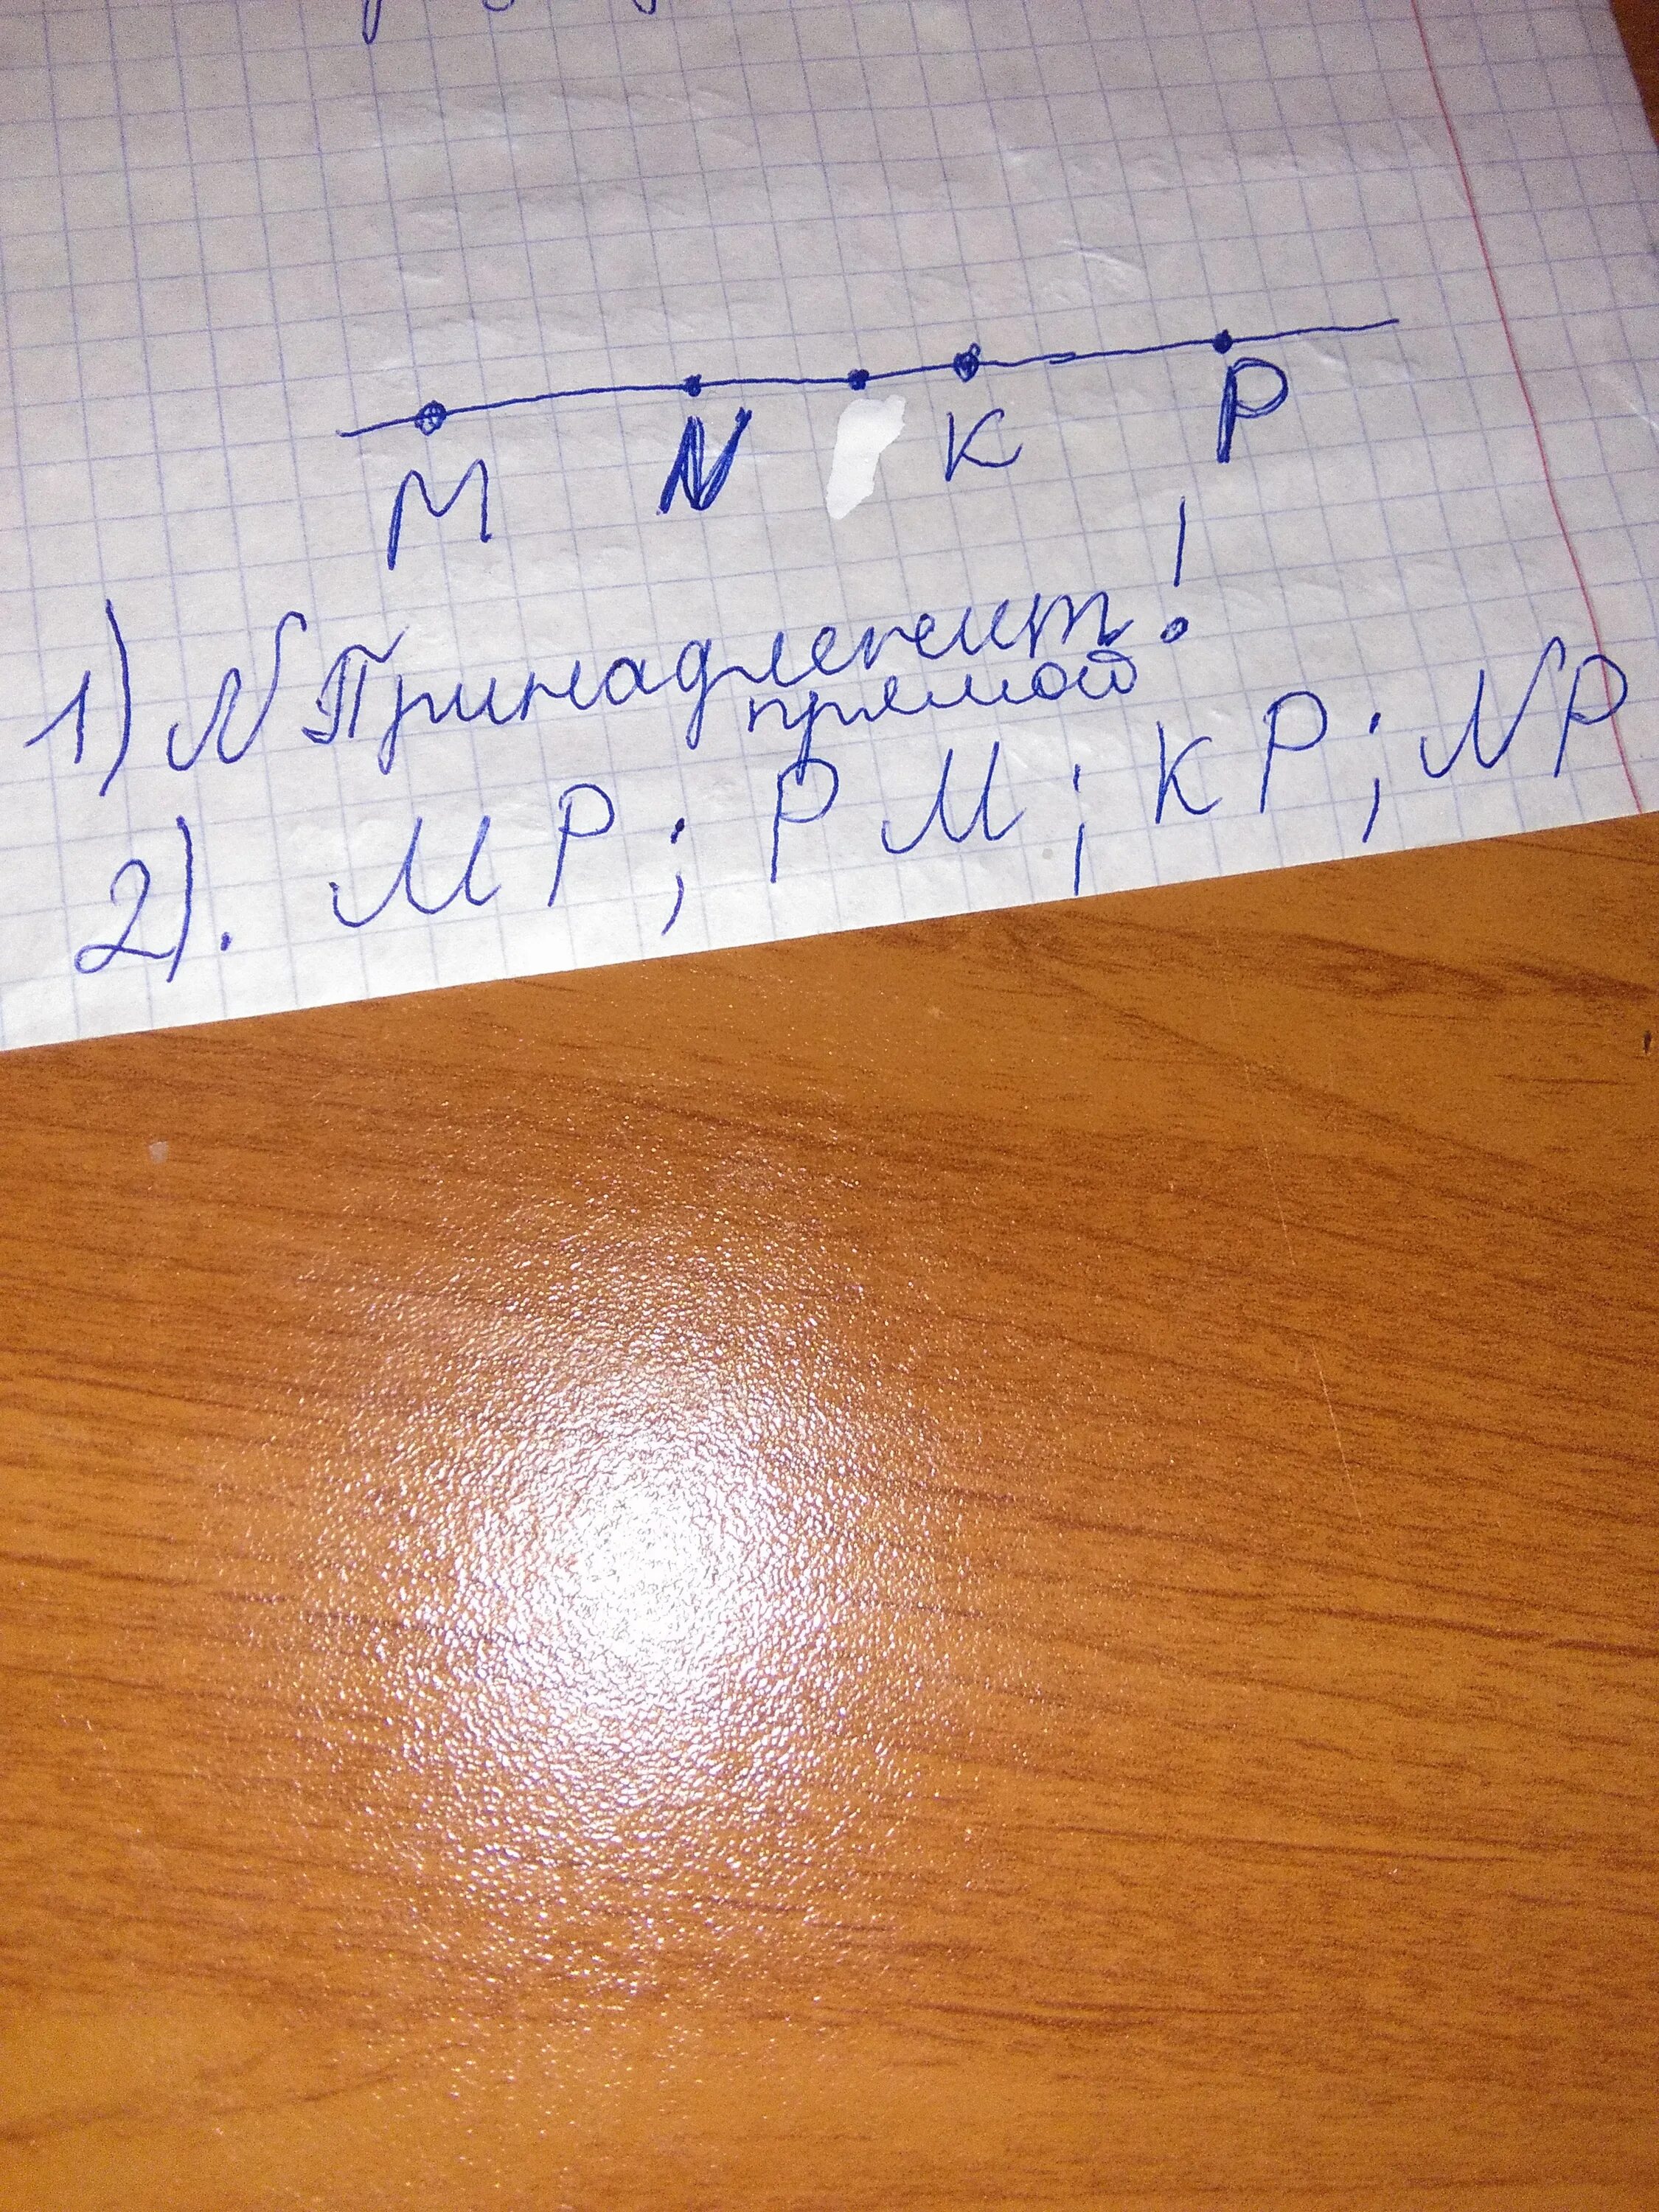 M N K P
1) N Принадлежит!
прямой
2). MP; PM; KP; NP